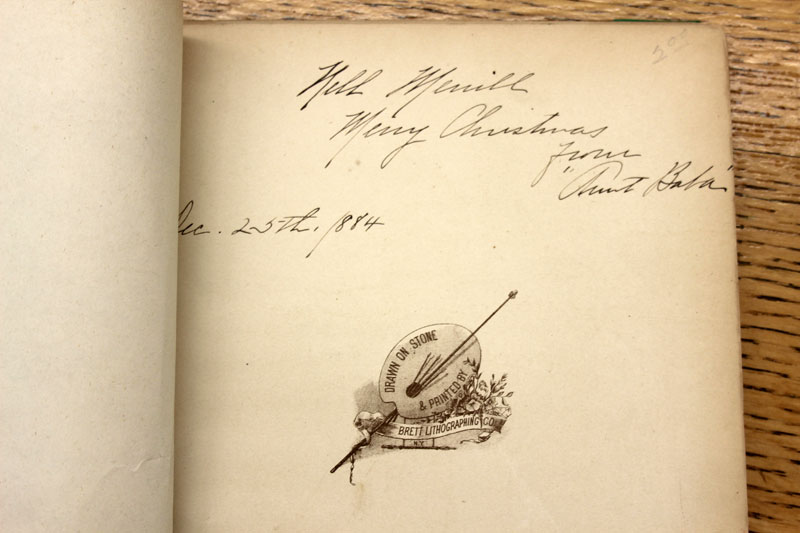 Nell Merrill
Merry Christmas
from
"Aunt Baba"
Dec. 25th, 1884
DRAWN ON STONE
& PRINTED BY
BRETT LITHOGRAPHING CO.
N.Y.